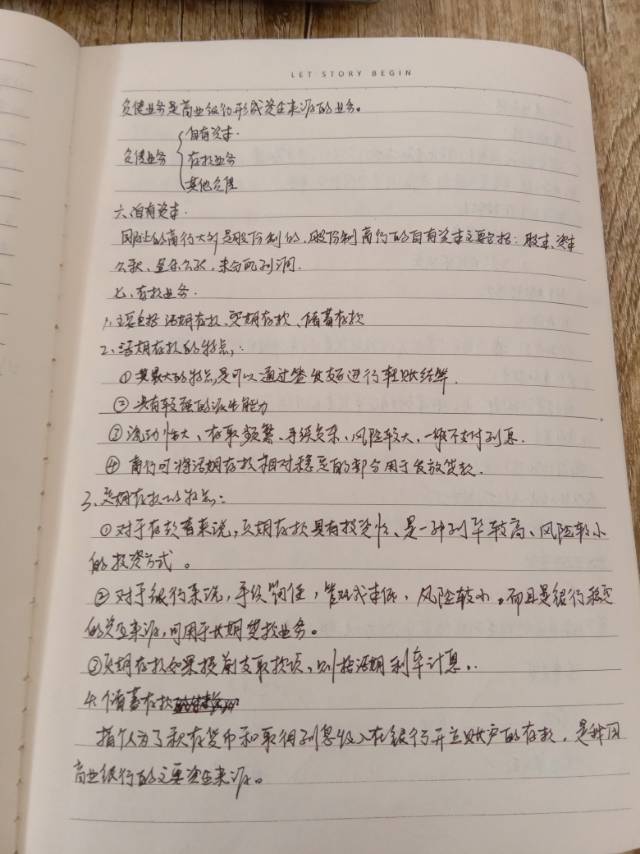 LET STORY BEGIN
负债业务是商业银行形成资金来源的业务。
自有资本.
负债业务 存款业务
其他负债
六.自有资本.
国际上的商行大多是股份制的,股份制商行的自有资本主要包括:股本、资本
公积、盈余公积、未分配利润.
七、存款业务.
1、主要包括活期存款、定期存款、储蓄存款
2、活期存款的特点:
①其最大的特点是可以通过签发支票进行转账结算.
②具有较强的派生能力
③流动性大、存取频繁、手续复杂、风险较大、一般不支付利息.
④商行可将活期存款相对稳定的部分用于发放贷款.
3、定期存款的特点:
①对于存款者来说,定期存款具有投资性、是一种利率较高、风险较小
的投资方式。
②对于银行来说,手续简便,管理成本低,风险较小。而且是银行稳定
的资金来源,可用于长期贷款业务。
③定期存款如果提前支取款项,则按活期利率计息.
4、储蓄存款
指个人为了积存货币和取得利息收入在银行开立账户的存款,是我国
商业银行的主要资金来源。